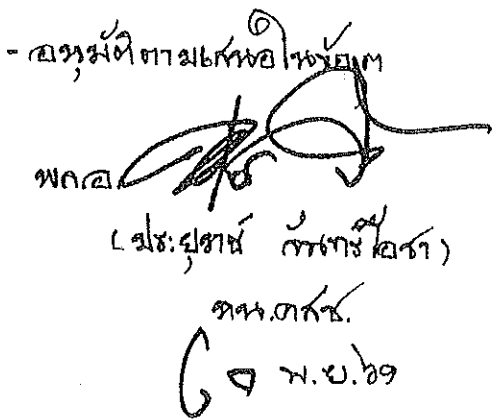 - อนุมัติตามเสนอในข้อ ๓
พล.อ.
(ประยุทธ์ จันทร์โอชา)
หน.คสช.
๒๐ พ.ย. ๖๑